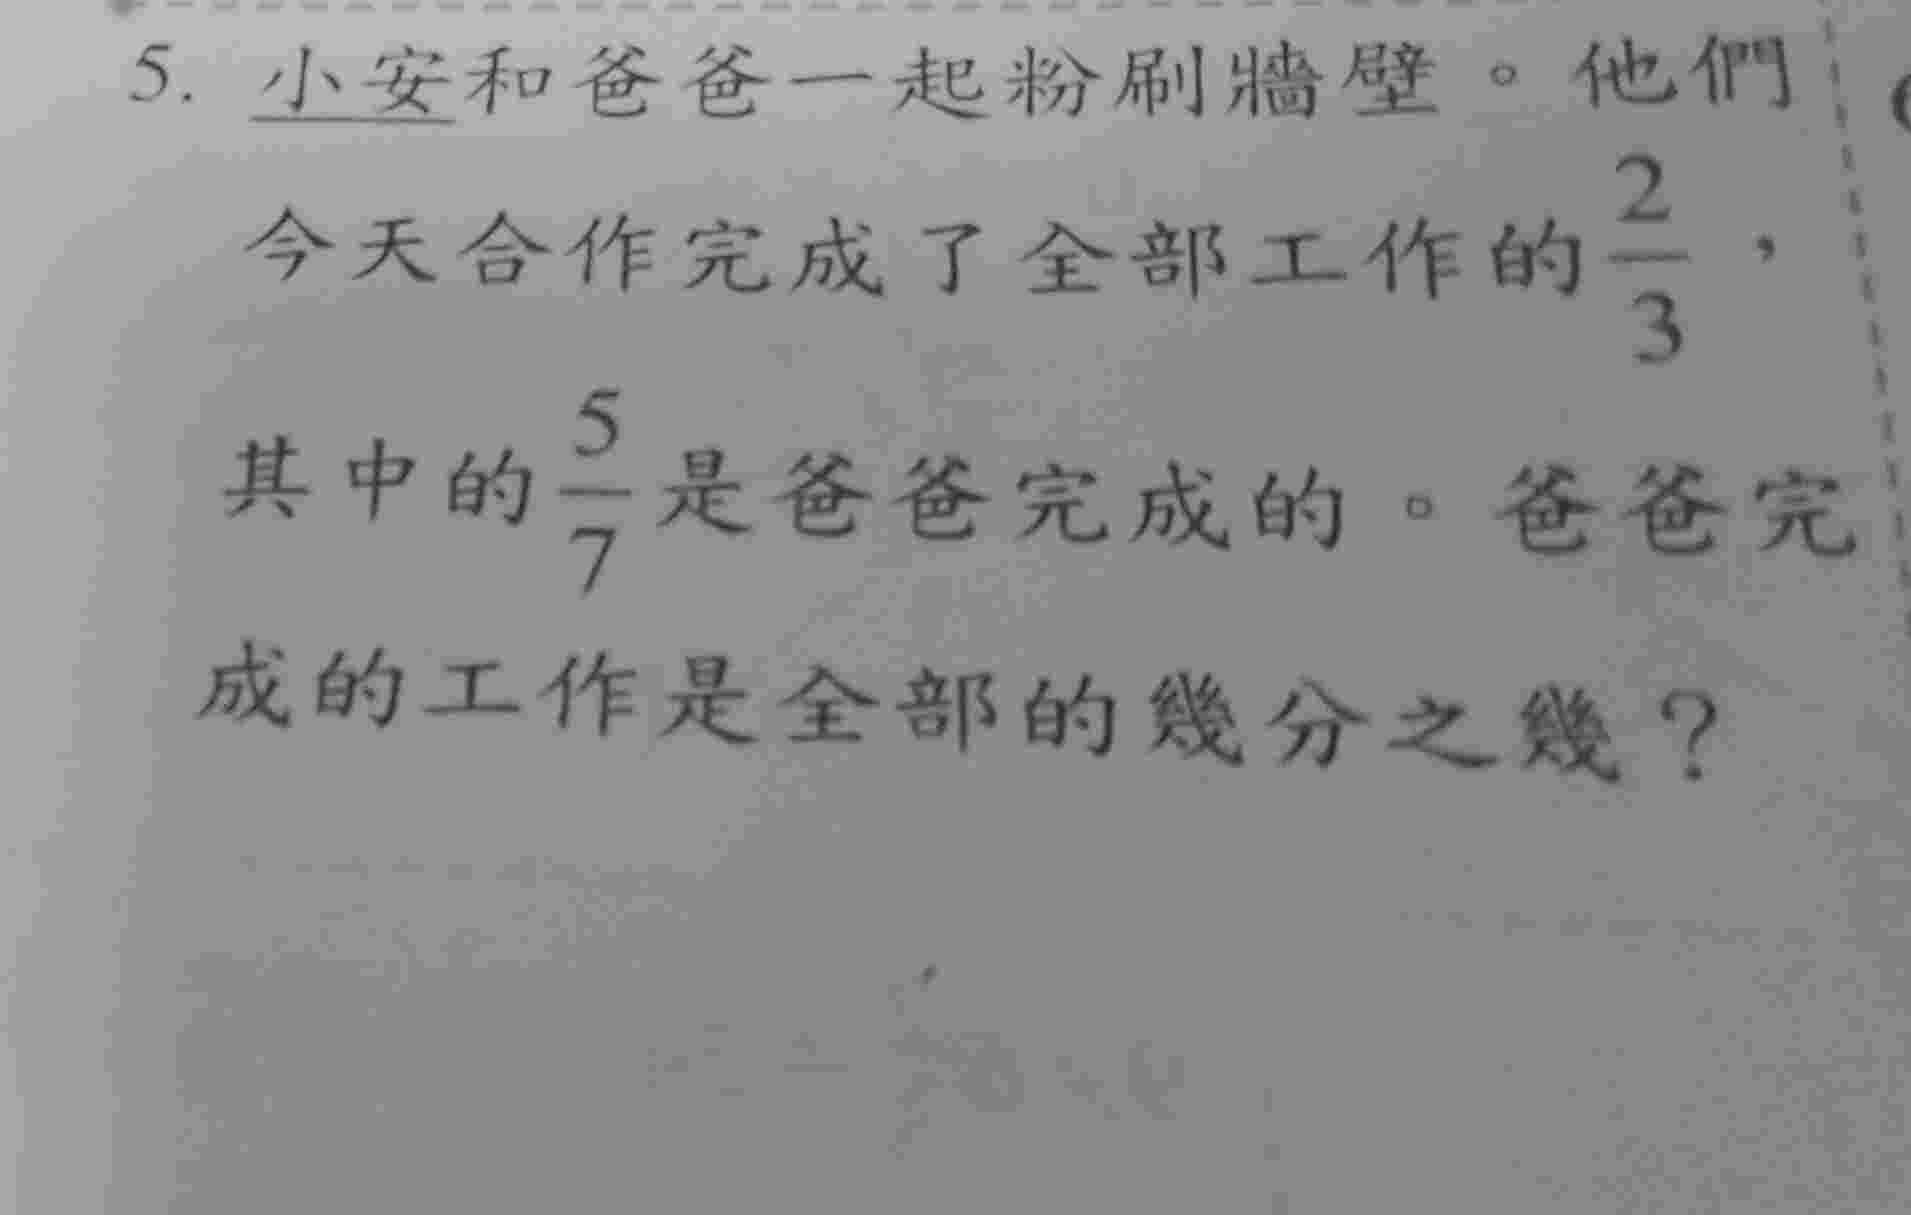 5. 小安和爸爸一起粉刷牆壁。他們
今天合作完成了全部工作的2/3，
其中的5/7是爸爸完成的。爸爸完
成的工作是全部的幾分之幾？